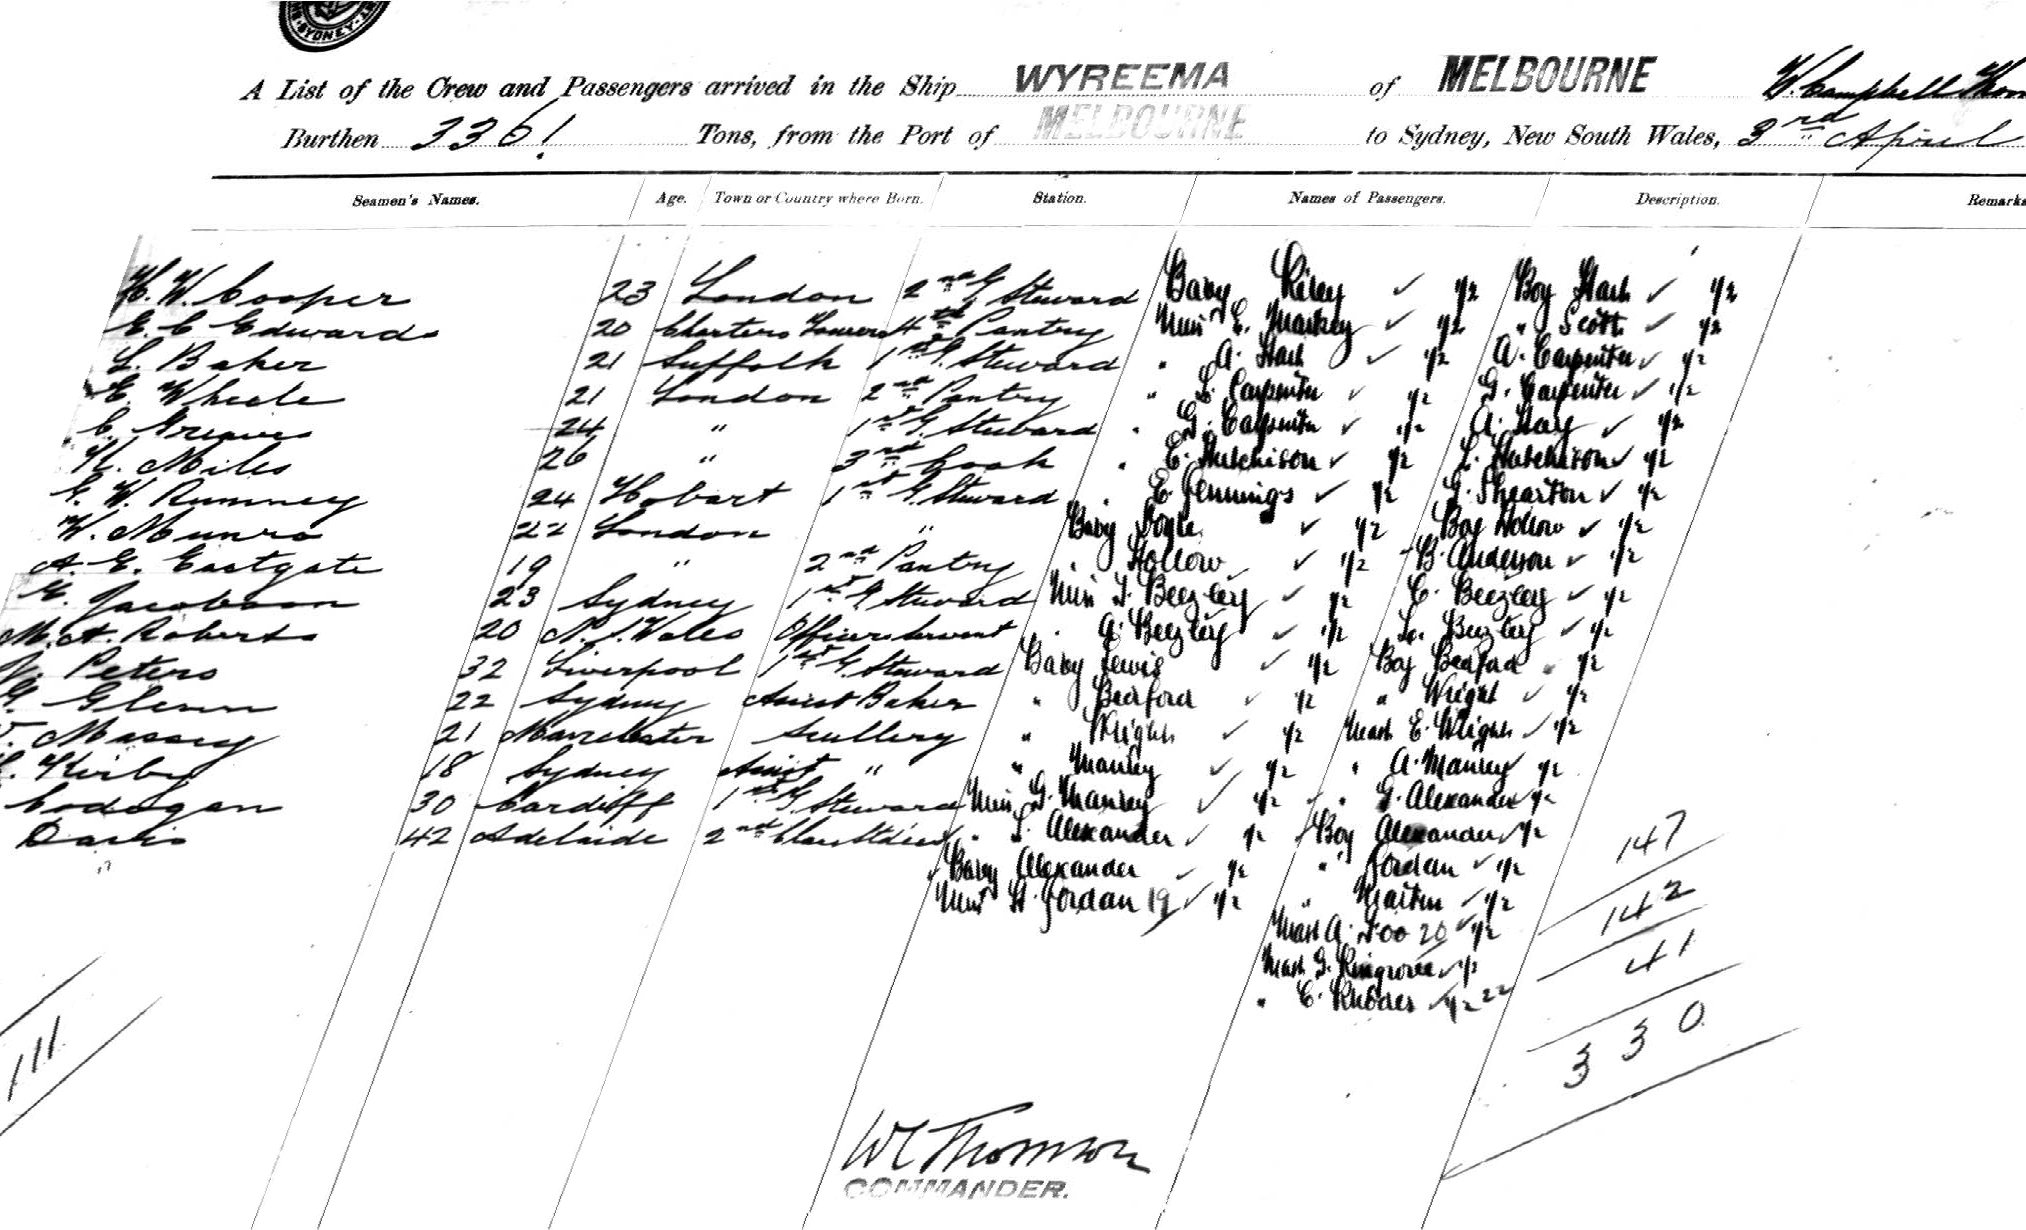 SYDNEY
A List of the Crew and Passengers arrived in the Ship WYREEMA of MELBOURNE W. Campbell
Burthen 3361 Tons, from the Port of MELBOURNE to Sydney, New South Wales, 3rd April
Seamen's Names. Age. Town or Country where Born. Station. Names of Passengers. Description. Remarks
H. W. Cooper 23 London 2nd G Steward Baby Riley ✓ ½ Boy Stark ✓ ½
E. C Edwards 20 Charters Towers 4th Pantry Miss E. Markey ✓ ½ " Scott ✓ ½
L. Baker 21 Suffolk 1st G. Steward " A. Stark ✓ ½ A. Carpenter ✓ ½
E. Wheele 21 London 2nd Pantry " L. Carpenter ✓ ½ G. Carpenter ✓ ½
C. Greaves 24 " 1st G. Steward " G. Carpenter ✓ ½ A. Hay ✓ ½
H. Miles 26 " 3rd Cook " E. Hutchison ✓ ½ L. Hutchison ✓ ½
G. W. Rumney 24 Hobart 1st G. Steward " E. Jennings ✓ ½ G. Shearton ✓ ½
W. Munro 22 London " Baby Doyle ✓ ½ Boy Hollow ✓ ½
A. E. Eastgate 19 " 2nd Pantry " Hollow ✓ ½ B. Anderson ✓ ½
G. Jacobson 23 Sydney 1st G Steward Miss I. Beezley ✓ ½ C. Beezley ✓ ½
M. A. Roberts 20 N. S. Wales Officers Servant " A. Beezley ✓ ½ L. Beezley ✓ ½
Peters 32 Liverpool 1st G. Steward Baby Lewis ✓ ½ Boy Bedford ½
G. Glenn 22 Sydney Assist Baker " Bedford ✓ ½ " Wright ✓ ½
Massey 21 Manchester Scullery " Wright ✓ ½ Mast E. Wright ✓ ½
Kirby 18 Sydney Assist " " Manley ✓ ½ " A. Manley ✓ ½
Codogan 30 Cardiff 1st G Steward Miss G. Manley ✓ ½ " G. Alexander ✓ ½
Davis 42 Adelaide 2nd " L. Alexander ✓ ½ Boy Alexander ✓ ½
Baby Alexander ✓ ½ " Jordan ✓ ½
Miss H. Jordan 19 ✓ ½ " ✓ ½
Mast A. Foo 20 ✓ ½
Mast G. Ringrose ✓ ½
" E. Rhodes ✓ ½ 22
147
142
41
330
111
WC Thomson
COMMANDER.